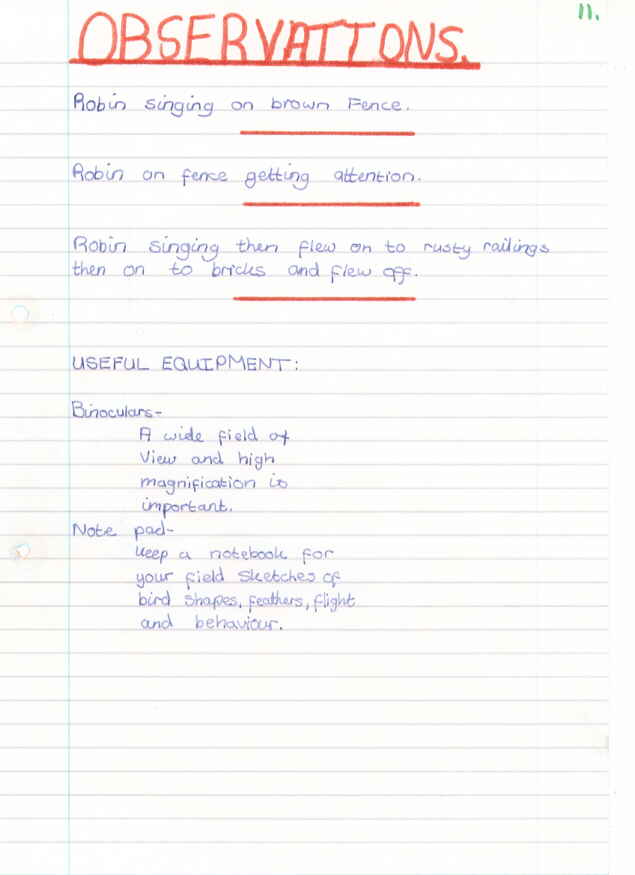 11.
OBSERVATIONS.
Robin singing on brown Fence.
Robin on fence getting attention.
Robin singing then flew on to rusty railings
then on to bricks and flew off.
USEFUL EQUIPMENT:
Binoculars-
A wide field of
View and high
magnification is
important.
Note pad-
Keep a notebook for
your field sketches of
bird shapes, feathers, flight
and behaviour.